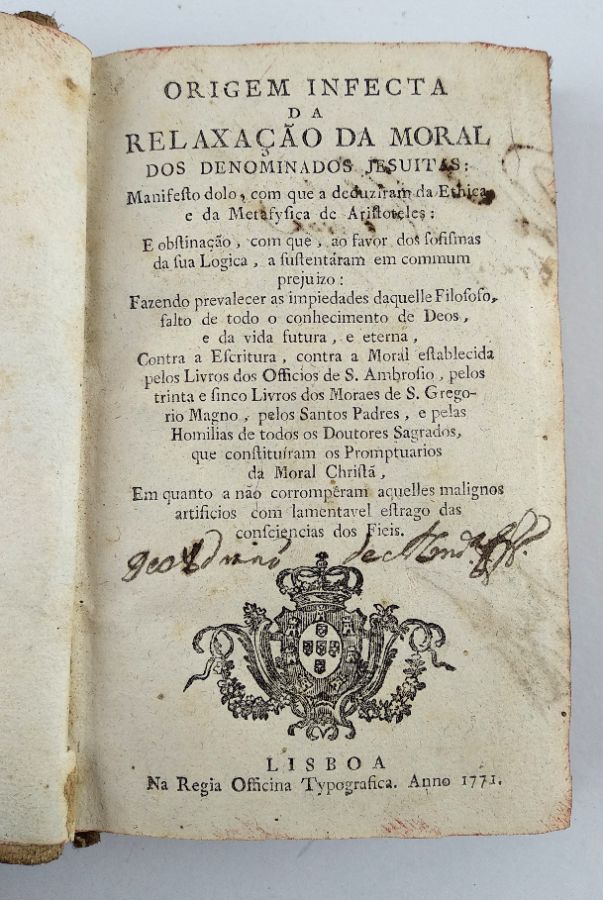 ORIGEM INFECTA
DA
RELAXAÇÃO DA MORAL
DOS DENOMINADOS JESUITAS:
Manifeſto dolo, com que a deduzíram da Ethica,
e da Metafyſica de Ariſtoteles:
E obſtinação, com que, ao favor dos ſofiſmas
da ſua Logica, a ſuſtentáram em commum
prejuizo:
Fazendo prevalecer as impiedades daquelle Filoſofo,
falto de todo o conhecimento de Deos,
e da vida futura, e eterna,
Contra a Eſcritura, contra a Moral eſtablecida
pelos Livros dos Officios de S. Ambroſio, pelos
trinta e ſinco Livros dos Moraes de S. Grego-
rio Magno, pelos Santos Padres, e pelas
Homilias de todos os Doutores Sagrados,
que conſtituíram os Promptuarios
da Moral Chriſtã,
Em quanto a não corrompêram aquelles malignos
artificios com lamentavel eſtrago das
conſciencias dos Fieis.
LISBOA
Na Regia Officina Typografica. Anno 1771.